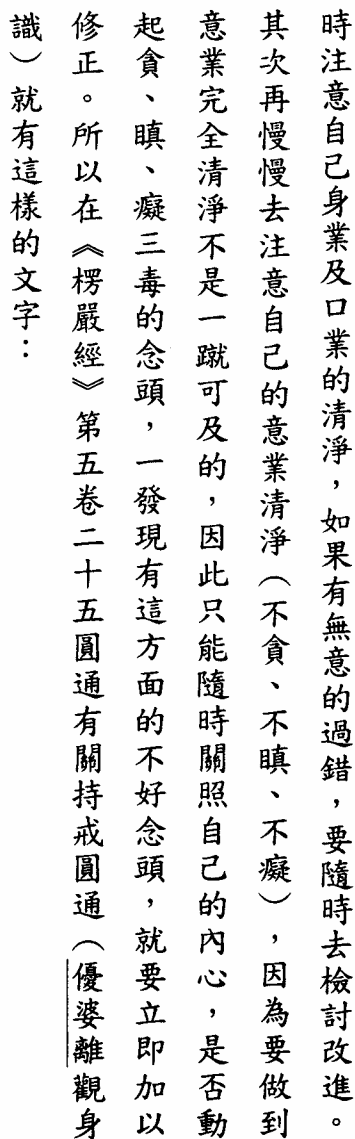 時注意自己身業及口業的清淨，如果有無意的過錯，要隨時去檢討改進。
其次再慢慢去注意自己的意業清淨（不貪、不瞋、不癡），因為要做到
意業完全清淨不是一蹴可及的，因此只能隨時關照自己的內心，是否動
起貪、瞋、癡三毒的念頭，一發現有這方面的不好念頭，就要立即加以
修正。所以在《楞嚴經》第五卷二十五圓通有關持戒圓通（優婆離觀身
識）就有這樣的文字：